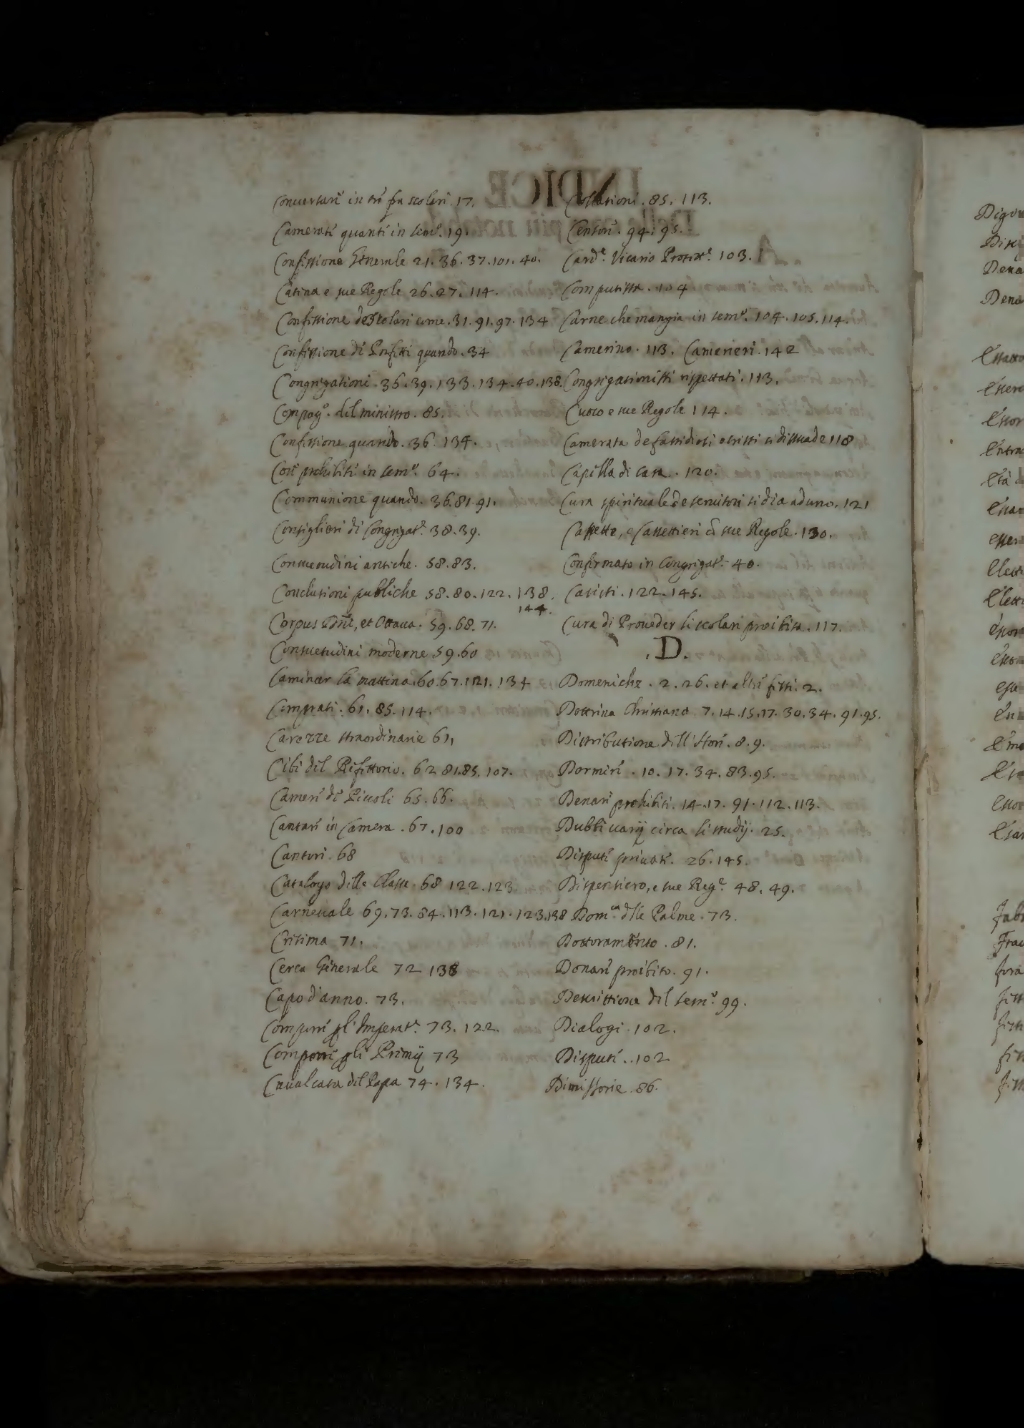 Conversari in trè fra scolari 17.
Camerate quanti in sem°. 19.
Confessione Generale 21. 36. 37. 101. 40.
Catena e sue Regole 26. 27. 114.
Confessione de Scolari come. 31. 91. 97. 134
Confessione di quando. 34
Congregationi. 36. 39. 133. 134. 40. 138.
Compag°. del ministro. 85.
Confessione quando. 36. 134.
Cose prohibiti in sem°. 64.
Communione quando. 36. 81. 91.
Consiglieri di Congregat°. 38. 39.
Consuetudini antiche. 58. 83.
Conclusioni publiche 58. 80. 122. 138.
144.
Corpus Dñi, et Ottava. 59. 68. 71.
Consuetudini moderne. 59. 60
Caminar la mattina. 60. 67. 121. 134
Comprati. 61. 85. 114.
Carozze straordinarie 61.
Cibi del Refettorio. 62. 81. 85. 107.
Cameri di Piccoli 65. 66.
Cantari in Camera. 67. 100
Cantori. 68
Catalogo delle Classi. 68. 122. 123
Carnevale 69. 73. 84. 113. 121. 123. 138
Cresima 71.
Cerca Generale 72. 138
Capo d'anno. 73.
73. 122.
73
Cavalcata del Papa 74. 134.
Collationi. 85. 113.
Censori. 94. 95.
Card°. Vicario Protet°. 103.
Computista. 104
Carne che mangia in sem°. 104. 105. 114.
Camerino. 113. Camerieri. 142
Congregationisti rispettati. 113.
Cuoco e sue Regole 114.
Camerata de fastidiosi si dissuade 118
Capella di casa. 120.
Cura spirituale de servitori si dia ad uno. 121
Caffetto, e Caffettieri cò sue Regole. 130.
Confermato in Congregat°. 40.
Casisti. 122. 145.
Cura di Proveder li scolari proibita. 117.
.D.
Domeniche. 2. 26. et altri festi. 2.
Dottrina Christiana 7. 14. 15. 17. 30. 34. 91. 95.
Distributione dell'Hori. 8. 9.
Dormiri. 10. 17. 34. 83. 95.
Denari prohibiti. 14. 17. 91. 112. 113.
circa li studij. 25.
Disputi privati. 26. 145.
Dispensiero, e sue Reg°. 48. 49.
Dom.ca dele Palme. 73.
Dottoramento. 81.
Donari proibito. 91.
Descrittione del sem°. 99.
Dialogi. 102.
Disputi. 102
Dimissorie. 86.